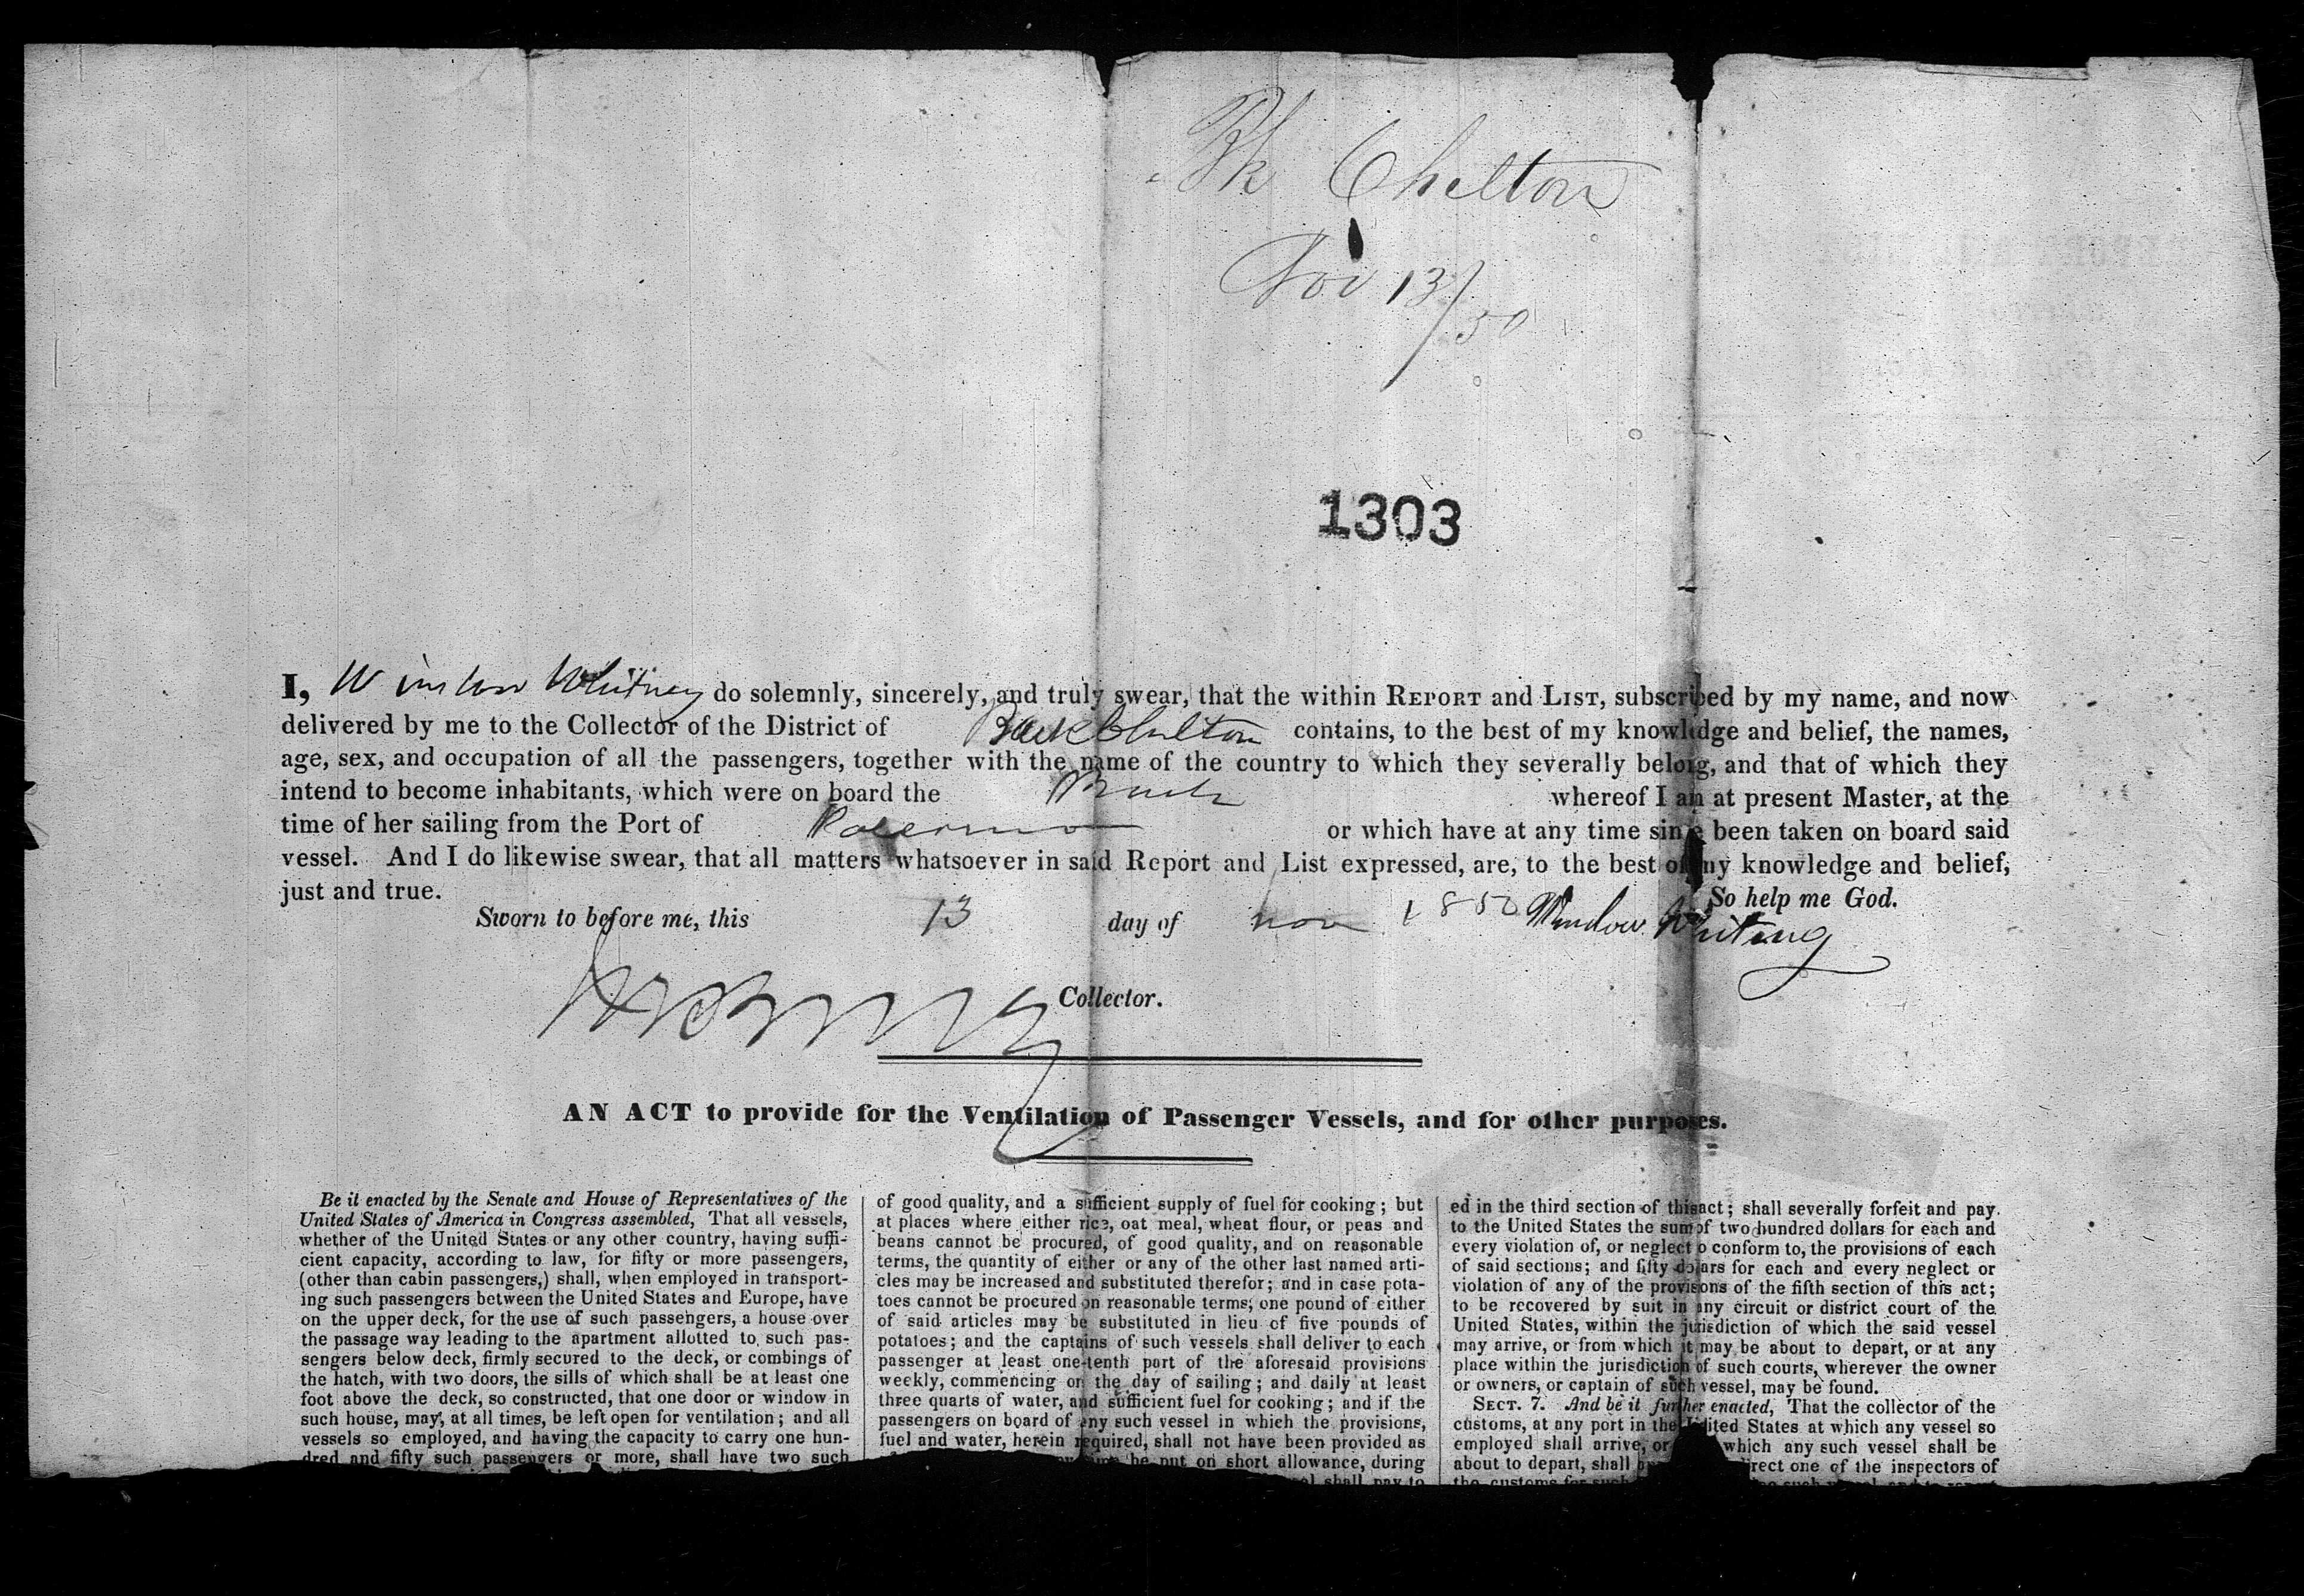 Bk Chelton
Nov 13/50
1303
I, Winslow Whitney do solemnly, sincerely, and truly swear, that the within REPORT and LIST, subscribed by my name, and now
delivered by me to the Collector of the District of Bark Chelton contains, to the best of my knowledge and belief, the names,
age, sex, and occupation of all the passengers, together with the name of the country to which they severally belong, and that of which they
intend to become inhabitants, which were on board the whereof I am at present Master, at the
time of her sailing from the Port of Palermo or which have at any time since been taken on board said
vessel. And I do likewise swear, that all matters whatsoever in said Report and List expressed, are, to the best of my knowledge and belief,
just and true. So help me God.
Sworn to before me, this 13 day of nov 1850 Winslow Whiting
Collector.
AN ACT to provide for the Ventilation of Passenger Vessels, and for other purposes.
Be it enacted by the Senate and House of Representatives of the
United States of America in Congress assembled, That all vessels,
whether of the United States or any other country, having suffi-
cient capacity, according to law, for fifty or more passengers,
(other than cabin passengers,) shall, when employed in transport-
ing such passengers between the United States and Europe, have
on the upper deck, for the use of such passengers, a house over
the passage way leading to the apartment allotted to such pas-
sengers below deck, firmly secured to the deck, or combings of
the hatch, with two doors, the sills of which shall be at least one
foot above the deck, so constructed, that one door or window in
such house, may, at all times, be left open for ventilation; and all
vessels so employed, and having the capacity to carry one hun-
dred and fifty such passengers or more, shall have two such
of good quality, and a sufficient supply of fuel for cooking; but
at places where either rice, oat meal, wheat flour, or peas and
beans cannot be procured, of good quality, and on reasonable
terms, the quantity of either or any of the other last named arti-
cles may be increased and substituted therefor; and in case pota-
toes cannot be procured on reasonable terms, one pound of either
of said articles may be substituted in lieu of five pounds of
potatoes; and the captains of such vessels shall deliver to each
passenger at least one-tenth part of the aforesaid provisions
weekly, commencing on the day of sailing; and daily at least
three quarts of water, and sufficient fuel for cooking; and if the
passengers on board of any such vessel in which the provisions,
fuel and water, herein required, shall not have been provided as
be put on short allowance, during
shall pay to
ed in the third section of this act; shall severally forfeit and pay
to the United States the sum of two hundred dollars for each and
every violation of, or neglect to conform to, the provisions of each
of said sections; and fifty dollars for each and every neglect or
violation of any of the provisions of the fifth section of this act;
to be recovered by suit in any circuit or district court of the
United States, within the jurisdiction of which the said vessel
may arrive, or from which it may be about to depart, or at any
place within the jurisdiction of such courts, wherever the owner
or owners, or captain of such vessel, may be found.
SECT. 7. And be it further enacted, That the collector of the
customs, at any port in the United States at which any vessel so
employed shall arrive, or which any such vessel shall be
about to depart, shall direct one of the inspectors of
the customs for such